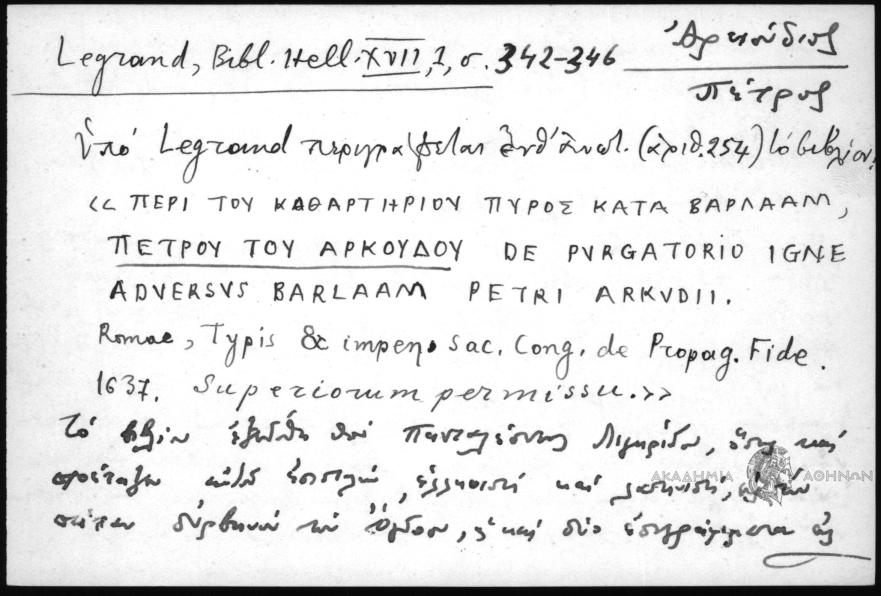 Legrand, Bibl. Hell. XVII, 1, σ. 342-346
Ἀρκούδιος
Πέτρος
Ὑπὸ Legrand περιγράφεται ἐνθ' ἀνωτ. (ἀριθ. 254) τὸ βιβλίον:
<< ΠΕΡΙ ΤΟΥ ΚΑΘΑΡΤΗΡΙΟΥ ΠΥΡΟΣ ΚΑΤΑ ΒΑΡΛΑΑΜ,
ΠΕΤΡΟΥ ΤΟΥ ΑΡΚΟΥΔΟΥ DE PVRGATORIO IGNE
ADVERSVS BARLAAM PETRI ARKVDII.
Romae, Typis & impen. sac. Cong. de Propag. Fide.
1637. Superiorum permissu. >>
Τὸ βιβλίον ἐξεδόθη ὑπὸ Πανταλέοντος Λιγαρίδου, ὅστις καὶ
προέταξεν αὐτοῦ ἐπιστολὴν, ἑλληνιστὶ καὶ λατινιστὶ,
πρὸς τὸν Οὐρβανὸν τὸν Ὄγδοον, καὶ δύο ἐπιγράμματα εἰς
ΑΚΑΔΗΜΙΑ ΑΘΗΝΩΝ